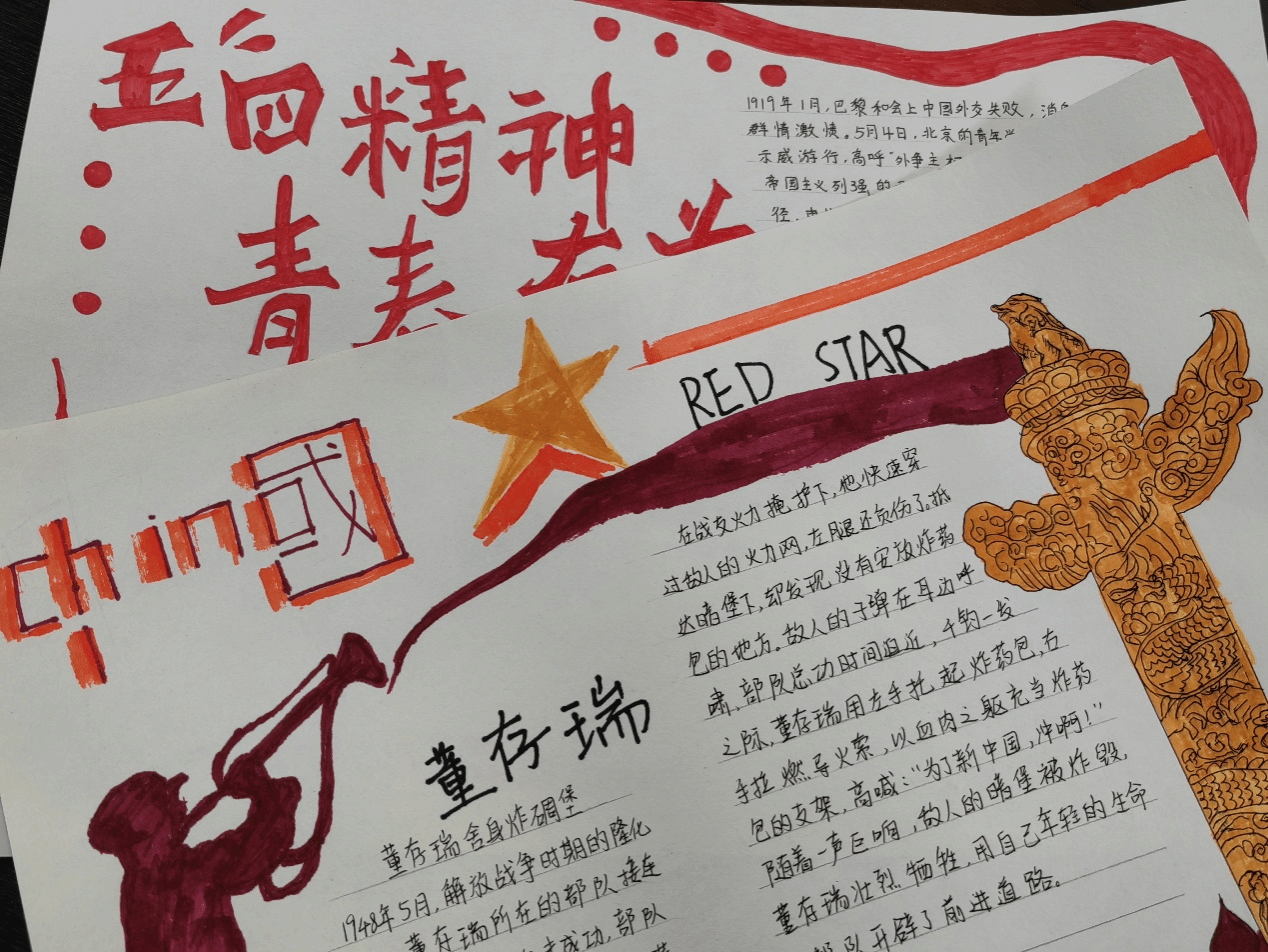 五四精神
青春
1919年1月,巴黎和会上中国外交失败,消
群情激愤。5月4日,北京的青年
示威游行,高呼"外争主
帝国主义列强的
径,
RED STAR
china
國
董存瑞
董存瑞舍身炸碉堡
1948年5月,解放战争时期的隆化
董存瑞所在的部队接连
成功,部队
在战友火力掩护下,他快速穿
过敌人的火力网,左腿还负伤了。抵
达暗堡下,却发现没有安放炸药
包的地方。敌人的子弹在耳边呼
啸,部队总功时间迫近,千钧一发
之际,董存瑞用左手扎起炸药包,右
手拉燃导火索,以血肉之躯充当炸药
包的支架,高喊:"为了新中国,冲啊!"
随着一声巨响,敌人的暗堡被炸毁,
董存瑞壮烈牺牲,用自己年轻的生命
部队开辟了前进道路。